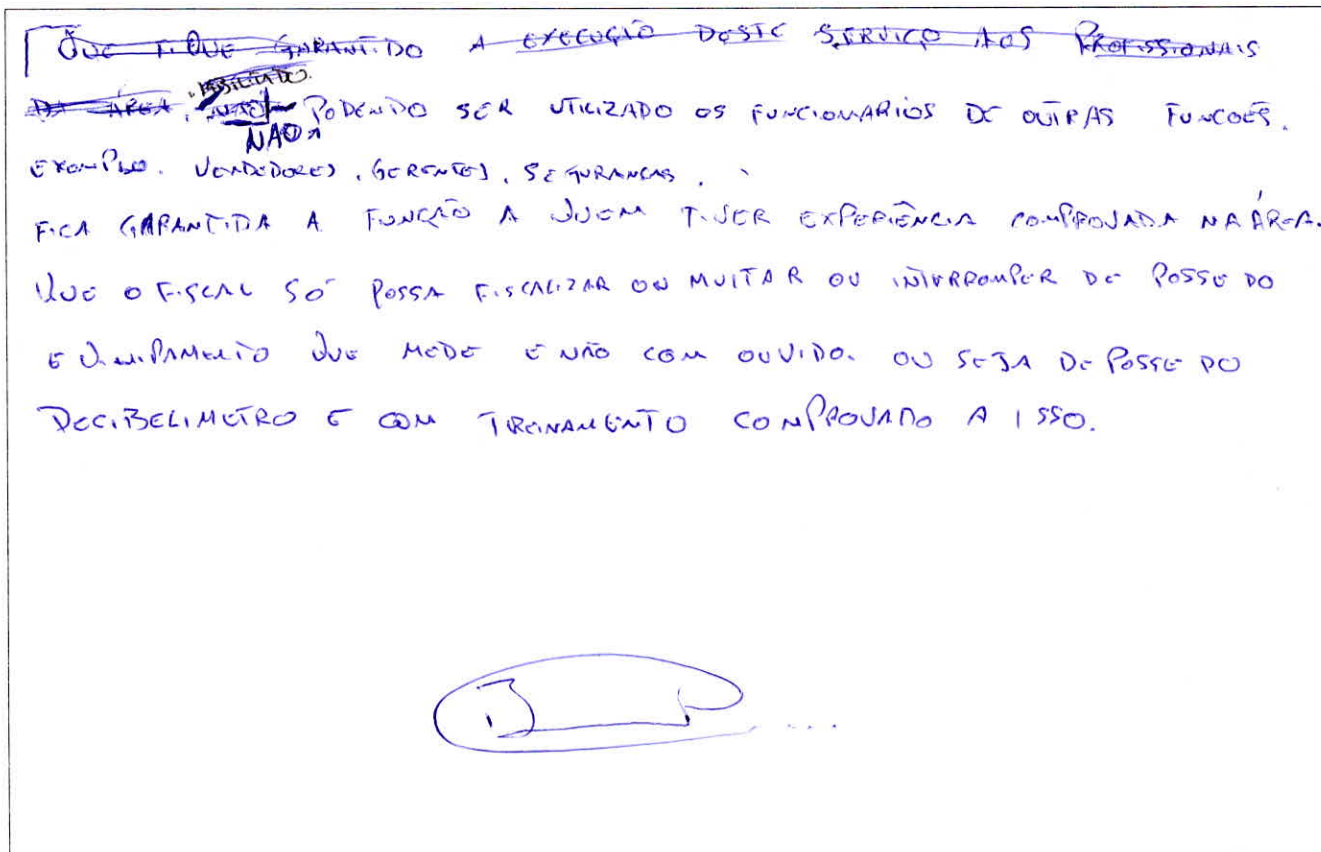 QUE FIQUE GARANTIDO A EXECUÇÃO DESTE SERVIÇO AOS PROFISSIONAIS
DA ÁREA, NÃO PODENDO SER UTILIZADO OS FUNCIONARIOS DE OUTRAS FUNCOÊS.
NÃO
EXEMPLO. VENDEDORES, GERENTES, SEGURANCAS.
FICA GARANTIDA A FUNÇÃO A QUEM TIVER EXPERIÊNCIA COMPROVADA NA ÁREA.
QUE O FISCAL SÓ POSSA FISCALIZAR OU MULTAR OU INTERROMPER DE POSSE DO
EQUIPAMENTO QUE MEDE E NÃO COM OUVIDO. OU SEJA DE POSSE DO
DECIBELIMETRO E COM TREINAMENTO COMPROVADO A ISSO.